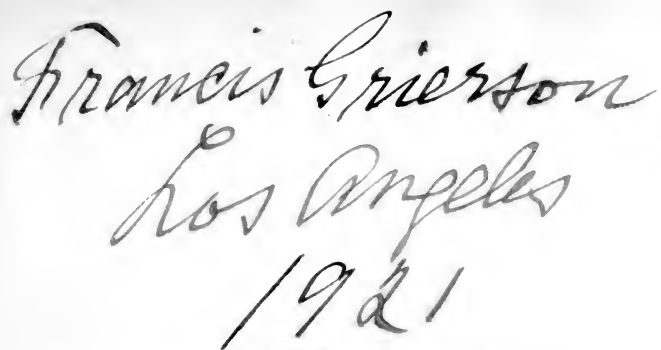 Francis Grierson
Los Angeles
1921